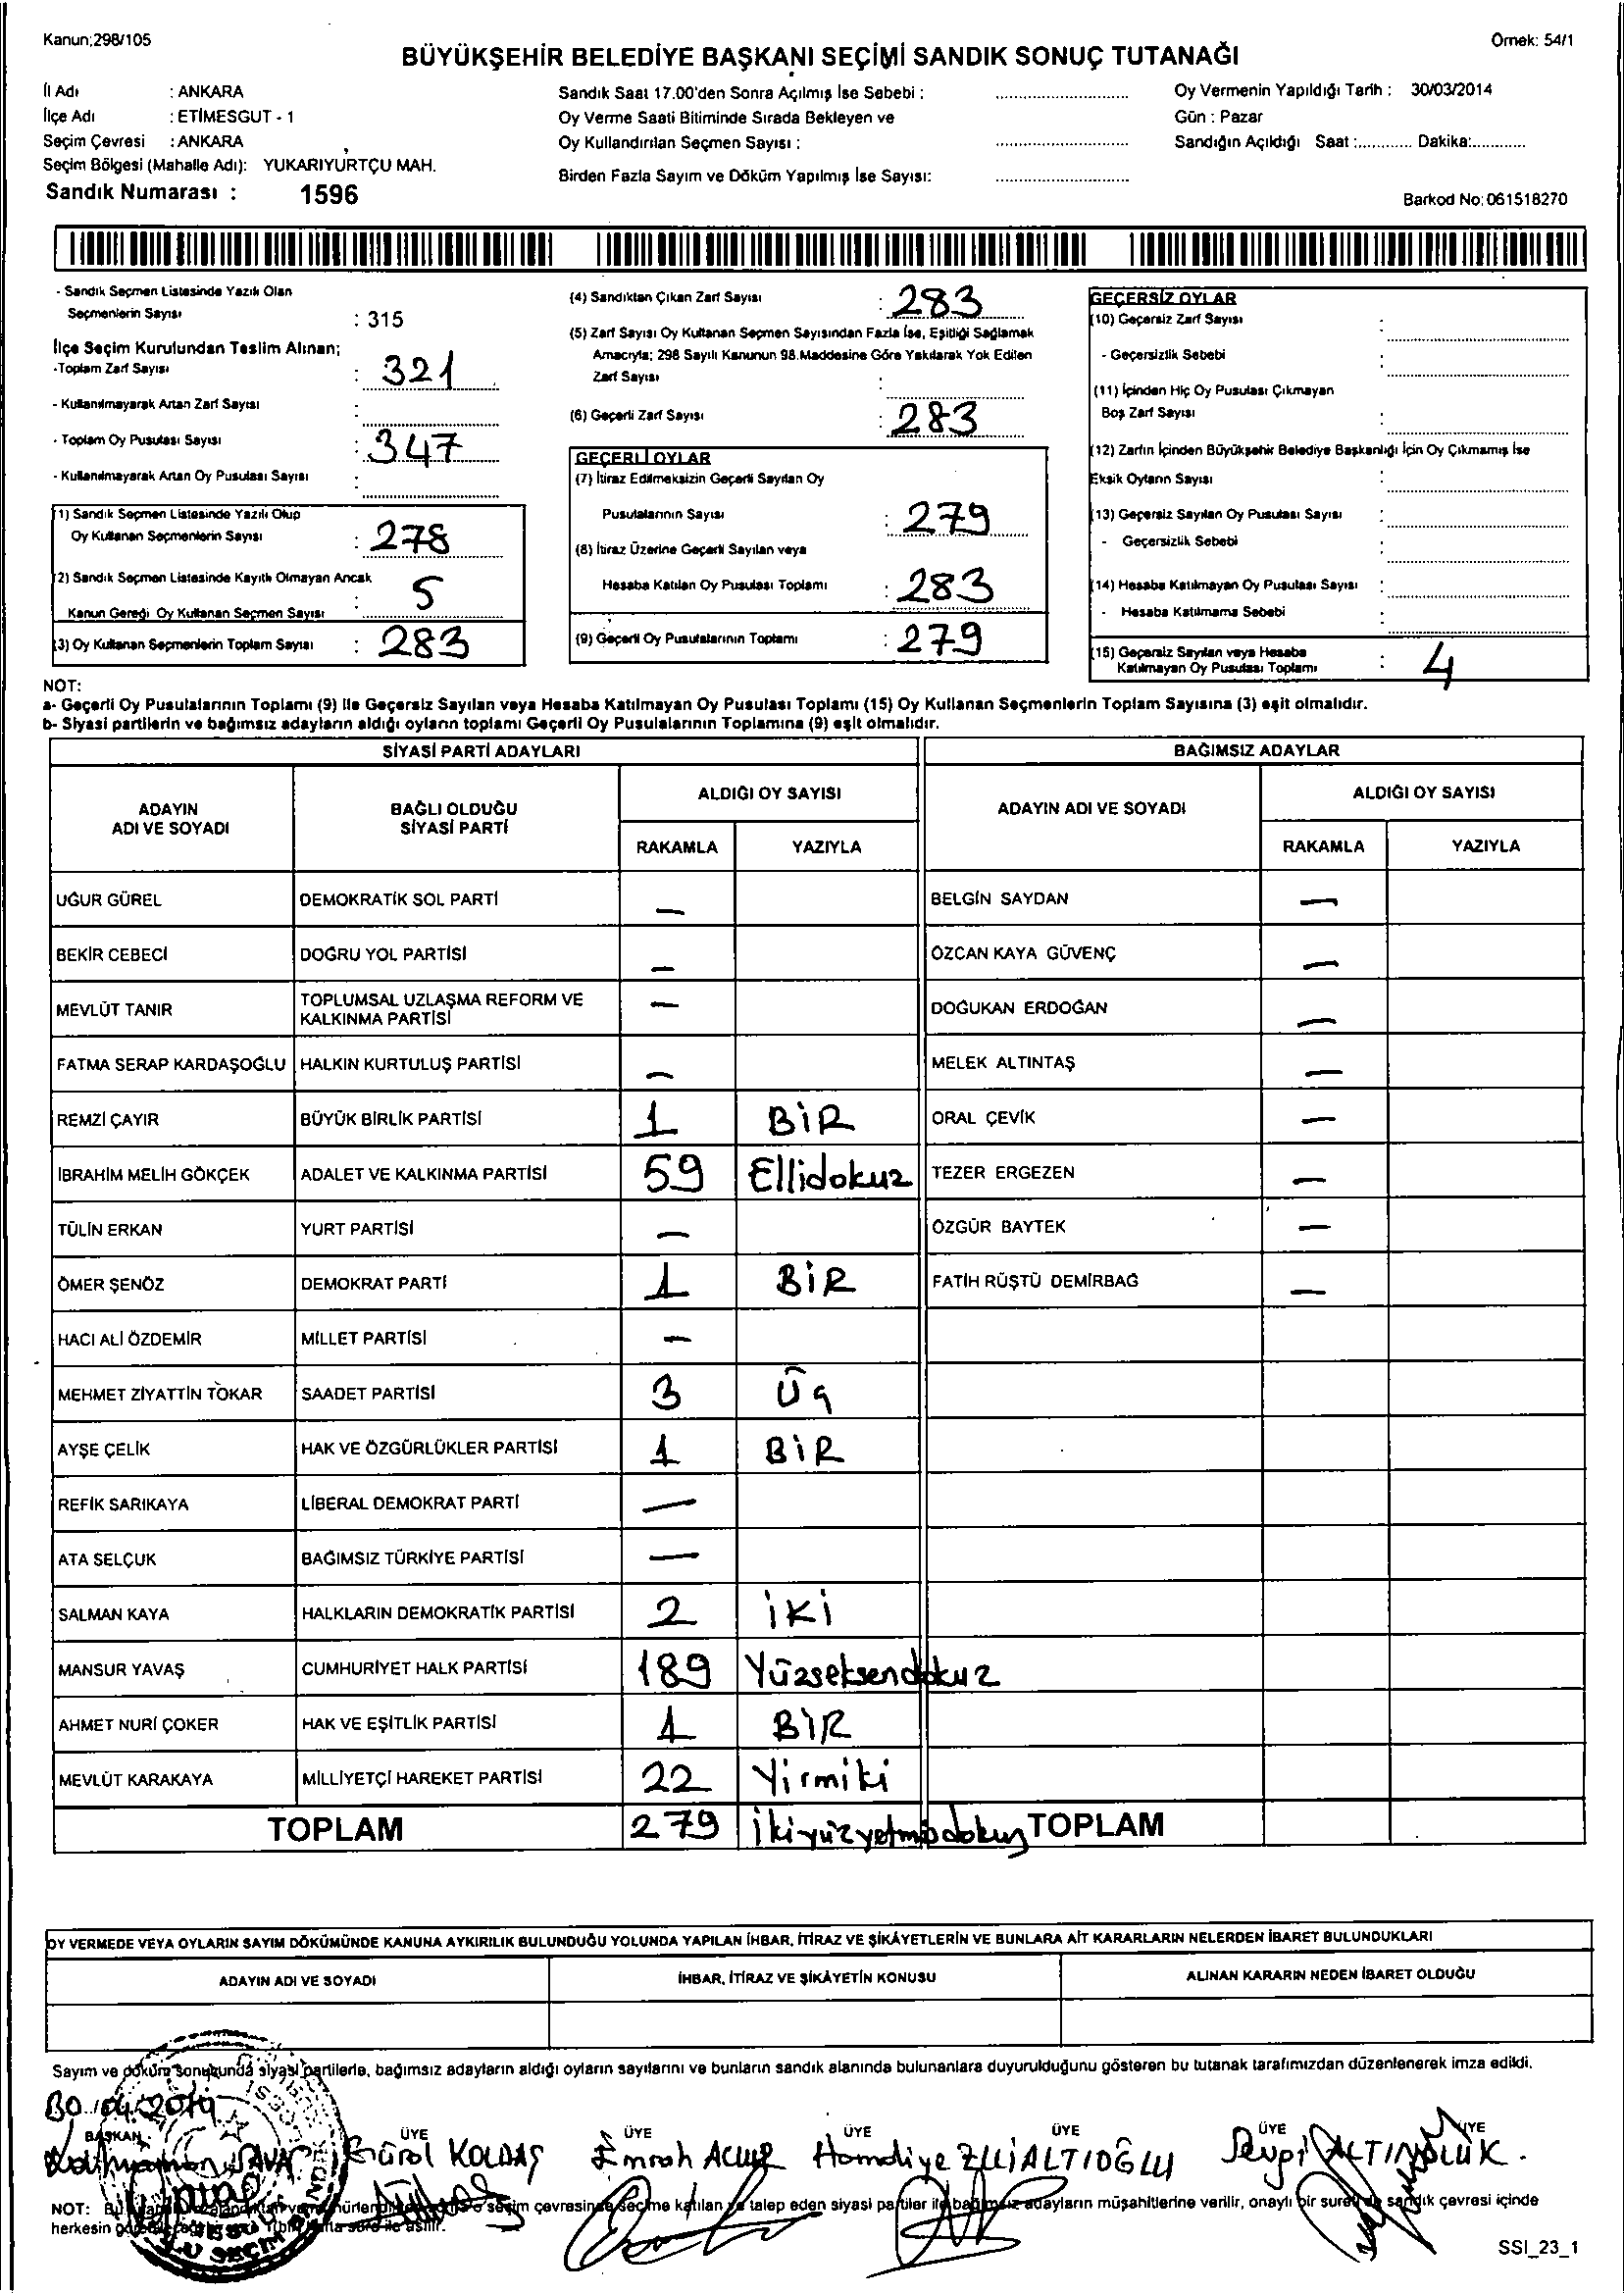 Kanun;298/105
Örnek: 54/1
BÜYÜKŞEHİR BELEDİYE BAŞKANI SEÇİMİ SANDIK SONUÇ TUTANAĞI
İl Adı : ANKARA
İlçe Adı : ETİMESGUT - 1
Seçim Çevresi : ANKARA
Seçim Bölgesi (Mahalle Adı): YUKARIYURTÇU MAH.
Sandık Numarası : 1596
Sandık Saat 17.00'den Sonra Açılmış İse Sebebi :
Oy Verme Saati Bitiminde Sırada Bekleyen ve
Oy Kullandırılan Seçmen Sayısı :
Birden Fazla Sayım ve Döküm Yapılmış İse Sayısı:
Oy Vermenin Yapıldığı Tarih : 30/03/2014
Gün : Pazar
Sandığın Açıldığı Saat :............ Dakika:............
Barkod No: 061518270
- Sandık Seçmen Listesinde Yazılı Olan
Seçmenlerin Sayısı : 315
İlçe Seçim Kurulundan Teslim Alınan;
-Toplam Zarf Sayısı : 321
- Kullanılmayarak Artan Zarf Sayısı :
- Toplam Oy Pusulası Sayısı : 347
- Kullanılmayarak Artan Oy Pusulası Sayısı :
(1) Sandık Seçmen Listesinde Yazılı Olup
Oy Kullanan Seçmenlerin Sayısı : 278
(2) Sandık Seçmen Listesinde Kayıtlı Olmayan Ancak
Kanun Gereği Oy Kullanan Seçmen Sayısı : 5
(3) Oy Kullanan Seçmenlerin Toplam Sayısı : 283
(4) Sandıktan Çıkan Zarf Sayısı : 283
(5) Zarf Sayısı Oy Kullanan Seçmen Sayısından Fazla İse, Eşitliği Sağlamak
Amacıyla; 298 Sayılı Kanunun 98.Maddesine Göre Yakılarak Yok Edilen
Zarf Sayısı :
(6) Geçerli Zarf Sayısı : 283
GEÇERLİ OYLAR
(7) İtiraz Edilmeksizin Geçerli Sayılan Oy
Pusulalarının Sayısı : 279
(8) İtiraz Üzerine Geçerli Sayılan veya
Hesaba Katılan Oy Pusulası Toplamı : 283
(9) Geçerli Oy Pusulalarının Toplamı : 279
GEÇERSİZ OYLAR
(10) Geçersiz Zarf Sayısı :
- Geçersizlik Sebebi :
(11) İçinden Hiç Oy Pusulası Çıkmayan
Boş Zarf Sayısı :
(12) Zarfın İçinden Büyükşehir Belediye Başkanlığı İçin Oy Çıkmamış İse
Eksik Oyların Sayısı :
(13) Geçersiz Sayılan Oy Pusulası Sayısı :
- Geçersizlik Sebebi :
(14) Hesaba Katılmayan Oy Pusulası Sayısı :
- Hesaba Katılmama Sebebi :
(15) Geçersiz Sayılan veya Hesaba
Katılmayan Oy Pusulası Toplamı : 4
NOT:
a- Geçerli Oy Pusulalarının Toplamı (9) ile Geçersiz Sayılan veya Hesaba Katılmayan Oy Pusulası Toplamı (15) Oy Kullanan Seçmenlerin Toplam Sayısına (3) eşit olmalıdır.
b- Siyasi partilerin ve bağımsız adayların aldığı oyların toplamı Geçerli Oy Pusulalarının Toplamına (9) eşit olmalıdır.
SİYASİ PARTİ ADAYLARI
BAĞIMSIZ ADAYLAR
ADAYIN ADI VE SOYADI
BAĞLI OLDUĞU SİYASİ PARTİ
ALDIĞI OY SAYISI
RAKAMLA YAZIYLA
ADAYIN ADI VE SOYADI
ALDIĞI OY SAYISI
RAKAMLA YAZIYLA
UĞUR GÜREL DEMOKRATİK SOL PARTİ — BELGİN SAYDAN —
BEKİR CEBECİ DOĞRU YOL PARTİSİ — ÖZCAN KAYA GÜVENÇ —
MEVLÜT TANIR TOPLUMSAL UZLAŞMA REFORM VE KALKINMA PARTİSİ — DOĞUKAN ERDOĞAN —
FATMA SERAP KARDAŞOĞLU HALKIN KURTULUŞ PARTİSİ — MELEK ALTINTAŞ —
REMZİ ÇAYIR BÜYÜK BİRLİK PARTİSİ 1 BİR ORAL ÇEVİK —
İBRAHİM MELİH GÖKÇEK ADALET VE KALKINMA PARTİSİ 59 Ellidokuz TEZER ERGEZEN —
TÜLİN ERKAN YURT PARTİSİ — ÖZGÜR BAYTEK —
ÖMER ŞENÖZ DEMOKRAT PARTİ 1 BİR FATİH RÜŞTÜ DEMİRBAĞ —
HACI ALİ ÖZDEMİR MİLLET PARTİSİ —
MEHMET ZİYATTİN TOKAR SAADET PARTİSİ 3 Üç
AYŞE ÇELİK HAK VE ÖZGÜRLÜKLER PARTİSİ 1 BİR
REFİK SARIKAYA LİBERAL DEMOKRAT PARTİ —
ATA SELÇUK BAĞIMSIZ TÜRKİYE PARTİSİ —
SALMAN KAYA HALKLARIN DEMOKRATİK PARTİSİ 2 İKİ
MANSUR YAVAŞ CUMHURİYET HALK PARTİSİ 189 Yüzseksendokuz
AHMET NURİ ÇOKER HAK VE EŞİTLİK PARTİSİ 1 BİR
MEVLÜT KARAKAYA MİLLİYETÇİ HAREKET PARTİSİ 22 Yirmiki
TOPLAM 279 İkiyüzyetmişdokuz TOPLAM
OY VERMEDE VEYA OYLARIN SAYIM DÖKÜMÜNDE KANUNA AYKIRILIK BULUNDUĞU YOLUNDA YAPILAN İHBAR, İTİRAZ VE ŞİKÂYETLERİN VE BUNLARA AİT KARARLARIN NELERDEN İBARET BULUNDUKLARI
ADAYIN ADI VE SOYADI İHBAR, İTİRAZ VE ŞİKÂYETİN KONUSU ALINAN KARARIN NEDEN İBARET OLDUĞU
Sayım ve döküm sonucunda siyasi partilerle, bağımsız adayların aldığı oyların sayılarını ve bunların sandık alanında bulunanlara duyurulduğunu gösteren bu tutanak tarafımızdan düzenlenerek imza edildi.
BAŞKAN ÜYE ÜYE ÜYE ÜYE ÜYE
Gürol KOLDAŞ Emrah Hamdiye Sevgi
NOT: seçim çevresinde seçime katılan ve talep eden siyasi partiler ile bağımsız adayların müşahitlerine verilir, onaylı bir sureti de sandık çevresi içinde
herkesin
SSI_23_1